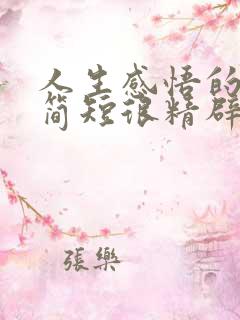 人生感悟的
简短很精辟
張樂